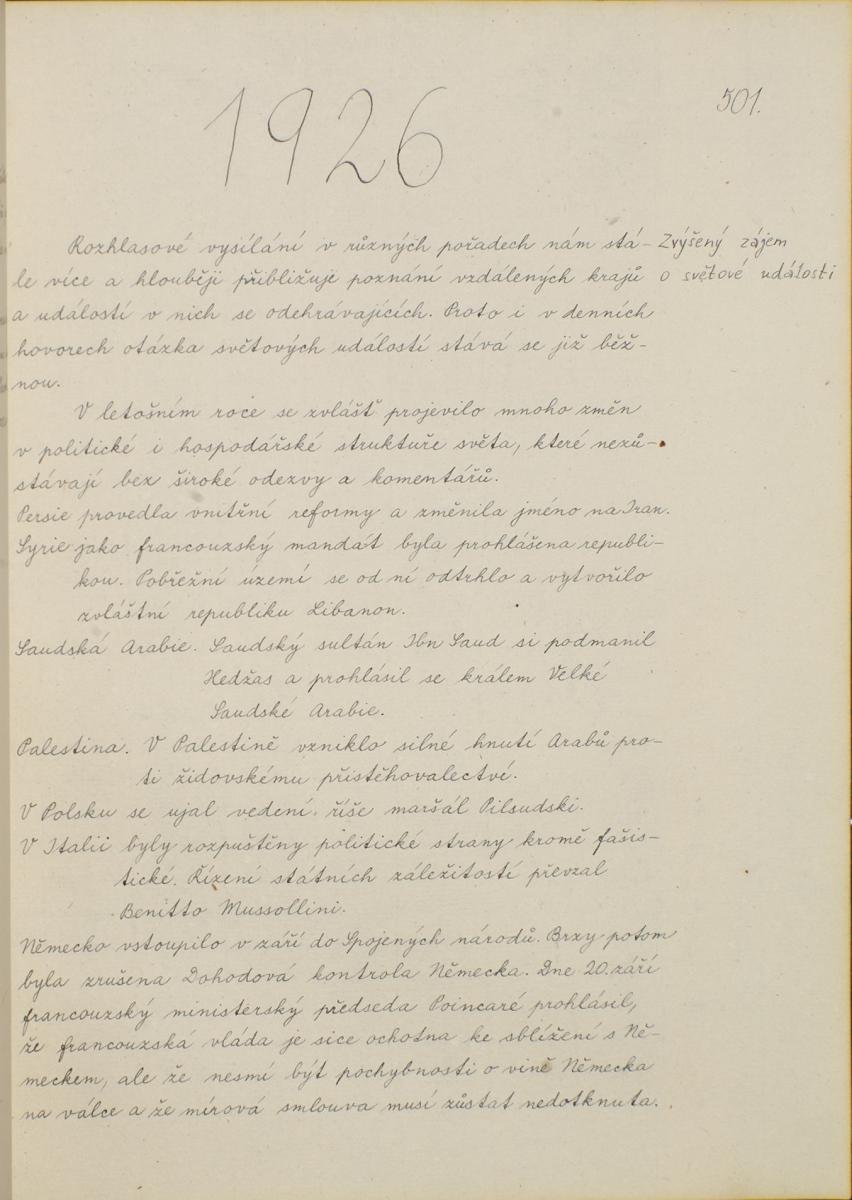 501.
1926
Rozhlasové vysílání v různých pořadech nám stá-
le více a hlouběji přibližuje poznání vzdálených krajů
a událostí v nich se odehrávajících. Proto i v denních
hovorech otázka světových událostí stává se již běž-
nou.
Zvýšený zájem
o světové události
V letošním roce se zvlášť projevilo mnoho změn
v politické i hospodářské struktuře světa, které nezů-
stávají bez široké odezvy a komentářů.
Persie provedla vnitřní reformy a změnila jméno na Iran.
Syrie jako francouzský mandát byla prohlášena republi-
kou. Pobřežní území se od ní odtrhlo a vytvořilo
zvláštní republiku Libanon.
Saudská Arabie. Saudský sultán Ibn Saud si podmanil
Hedžas a prohlásil se králem Velké
Saudské Arabie.
Palestina. V Palestině vzniklo silné hnutí Arabů pro-
ti židovskému přistěhovalectví.
V Polsku se ujal vedení říše maršál Pilsudski.
V Italii byly rozpuštěny politické strany kromě fašis-
tické. Řízení státních záležitostí převzal
Benitto Mussollini.
Německo vstoupilo v září do Spojených národů. Brzy potom
byla zrušena Dohodová kontrola Německa. Dne 20. září
francouzský ministerský předseda Poincaré prohlásil,
že francouzská vláda je sice ochotna ke sblížení s Ně-
meckem, ale že nesmí být pochybnosti o vině Německa
na válce a že mírová smlouva musí zůstat nedotknuta.